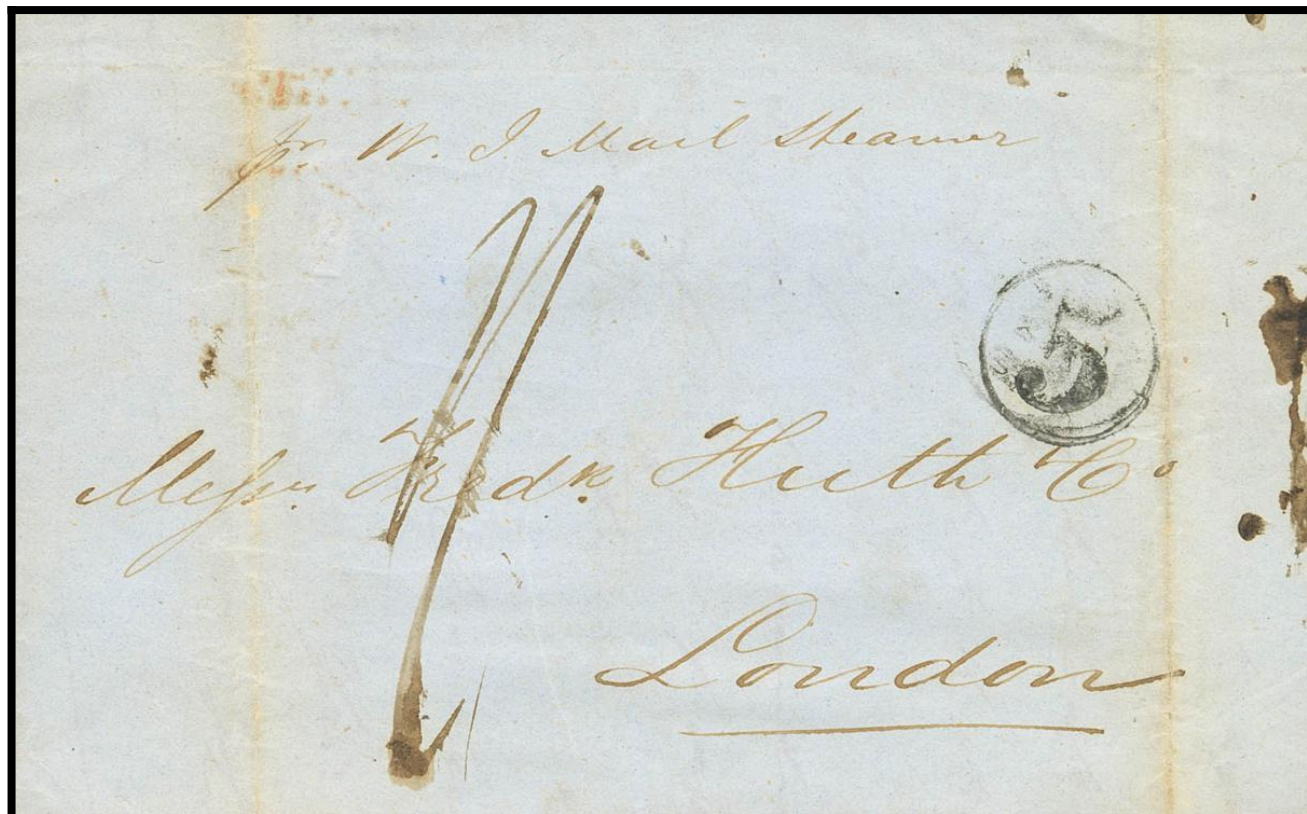 pr W. I Mail Steamer
5
Messrs. Fredk. Huth Co
London